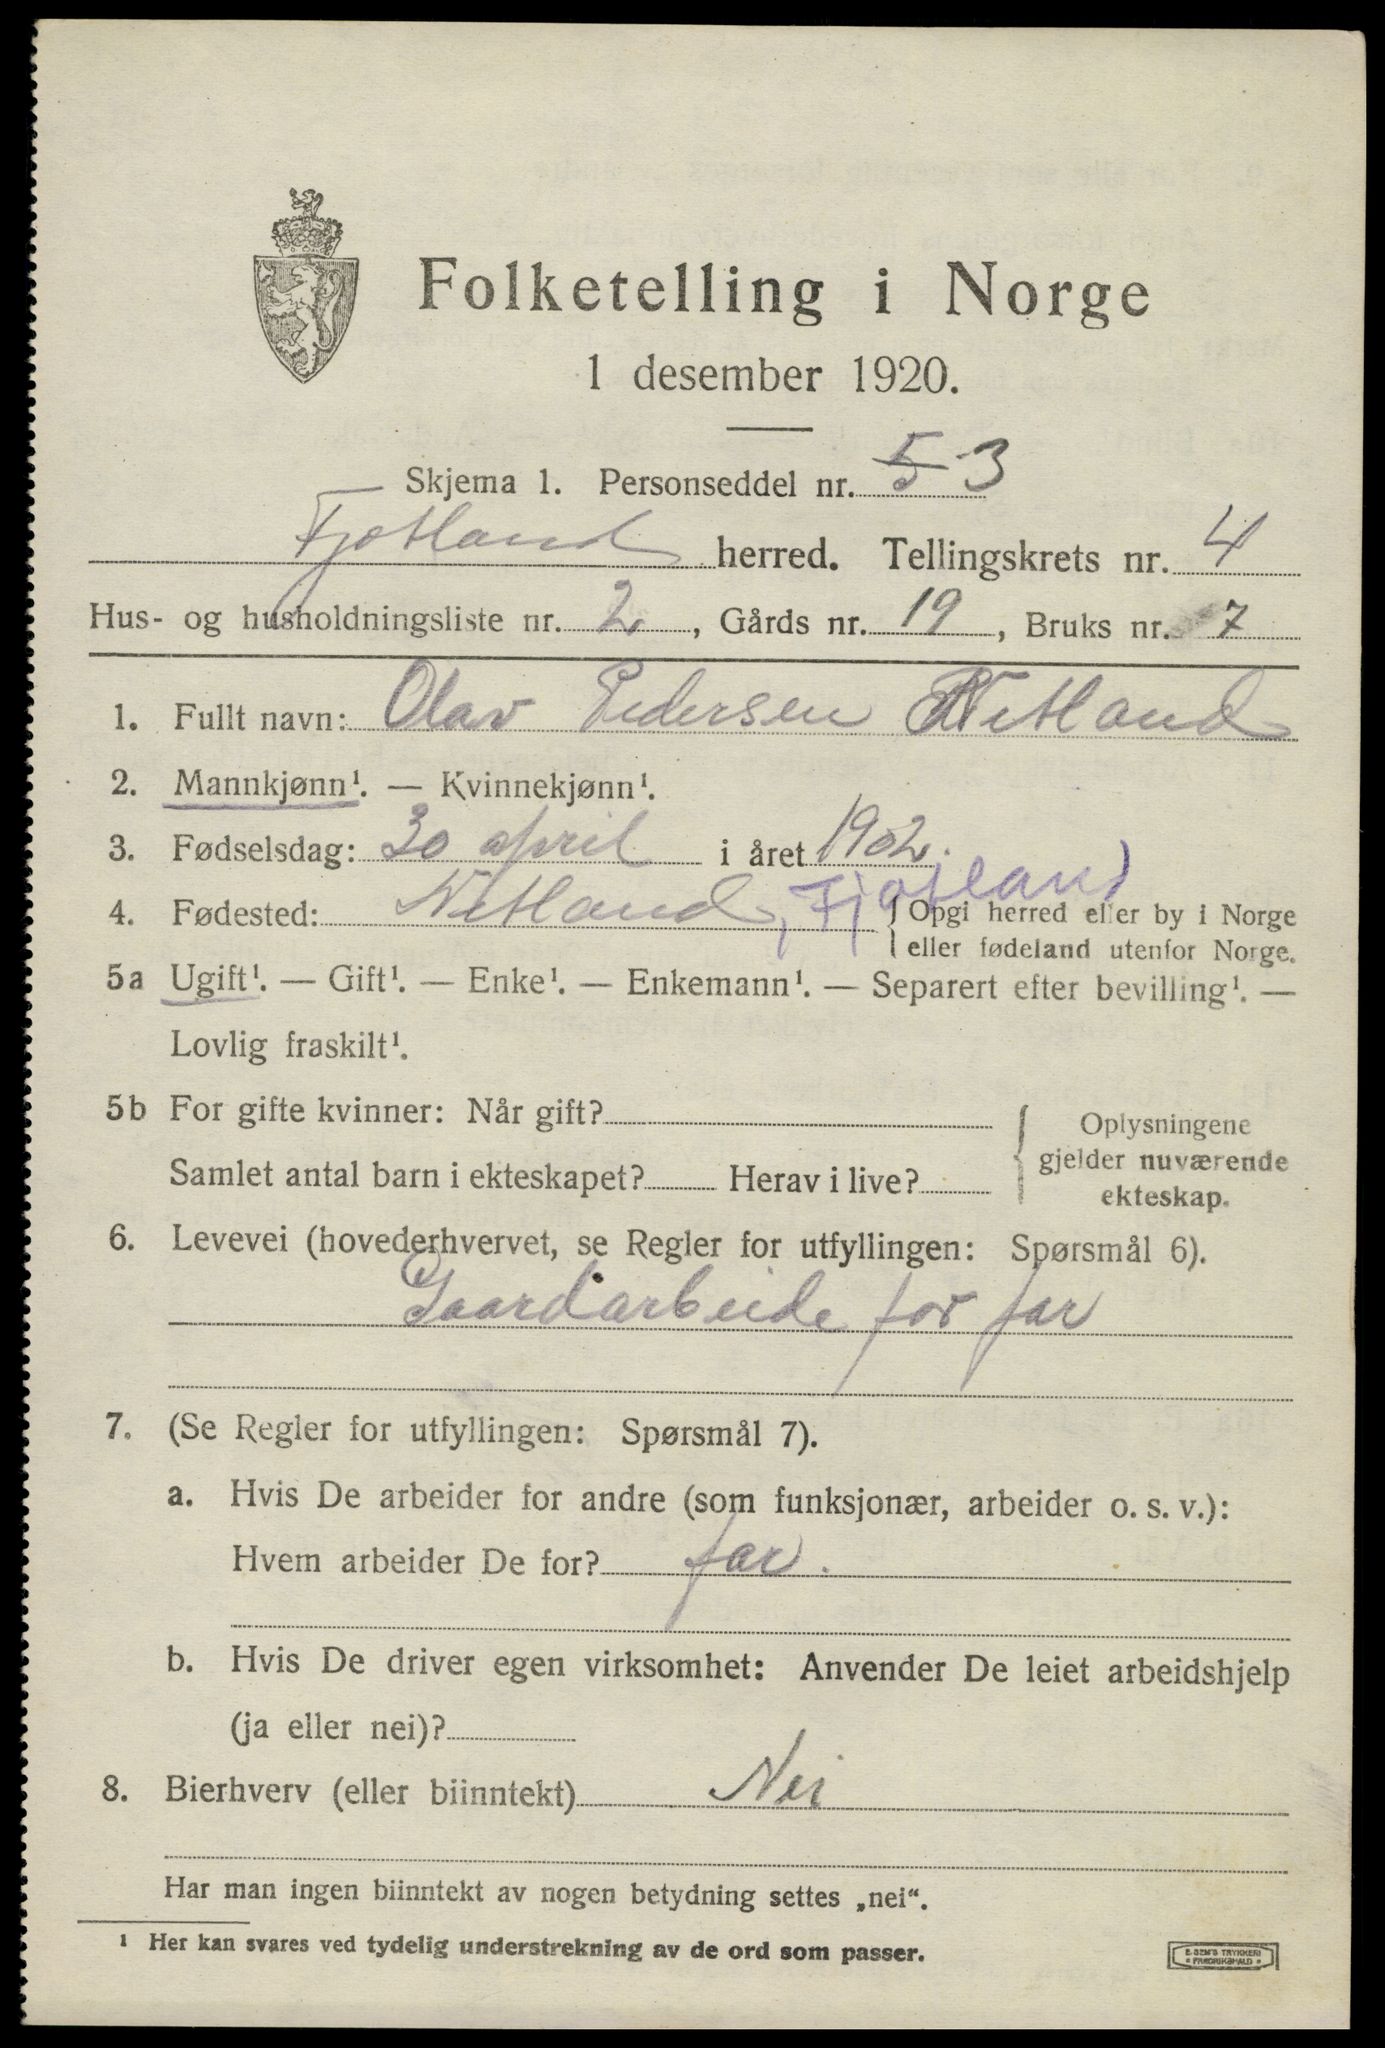 Folketelling i Norge
1 desember 1920.
Skjema 1. Personseddel nr. 5 3
Fjotland herred. Tellingskrets nr. 4
Hus- og husholdningsliste nr. 2, Gårds nr. 19, Bruks nr. 7
1. Fullt navn: Olav Pedersen Netland
2. Mannkjønn¹. — Kvinnekjønn¹.
3. Fødselsdag: 30 april i året 1902.
4. Fødested: Netland, Fjotland { Opgi herred eller by i Norge
eller fødeland utenfor Norge.
5a Ugift¹. — Gift¹. — Enke¹. — Enkemann¹. — Separert efter bevilling¹. —
Lovlig fraskilt¹.
5b For gifte kvinner: Når gift?
Samlet antal barn i ekteskapet? Herav i live?
{ Oplysningene
gjelder nuværende
ekteskap.
6. Levevei (hovederhvervet, se Regler for utfyllingen: Spørsmål 6).
Gaardarbeide for far
7. (Se Regler for utfyllingen: Spørsmål 7).
a. Hvis De arbeider for andre (som funksjonær, arbeider o. s. v.):
Hvem arbeider De for? far.
b. Hvis De driver egen virksomhet: Anvender De leiet arbeidshjelp
(ja eller nei)?
8. Bierhverv (eller biinntekt) Nei
Har man ingen biinntekt av nogen betydning settes „nei“.
¹ Her kan svares ved tydelig understrekning av de ord som passer.
E. SEM'S TRYKKERI
* FREDRIKSHALD *